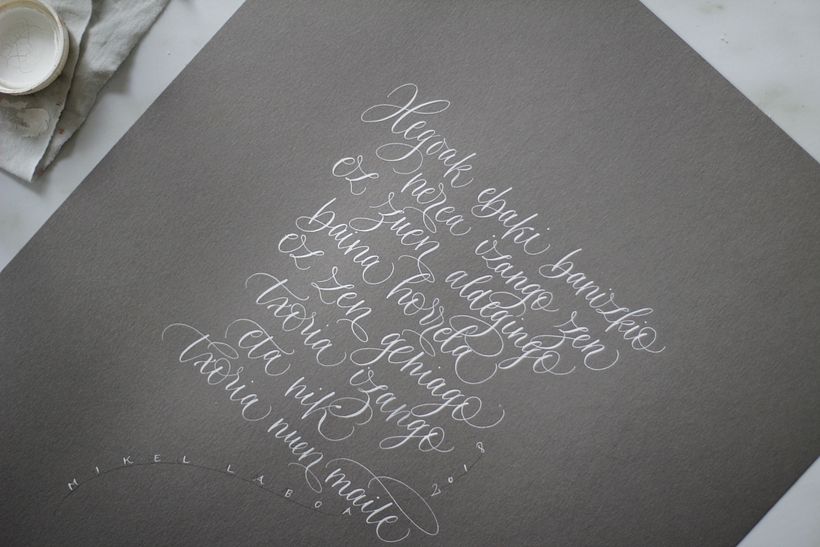 Hegoak ebaki banizkio
nerea izango zen
ez zuen aldegingo
baina horrela
ez zen gehiago
txoria izango
eta nik
txoria nuen maite
MIKEL LABOA
2018